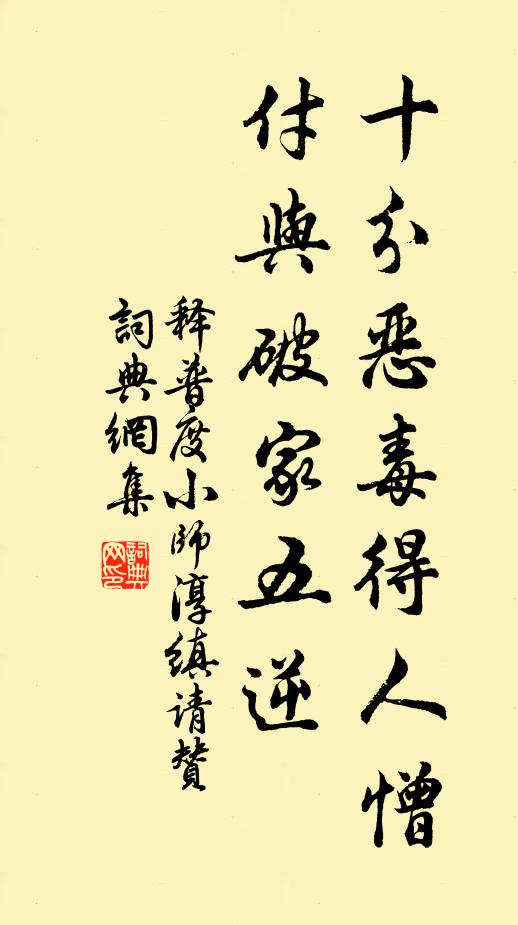 十分恶毒得人憎
付與破家五逆
释普度小师淳缜请赞
詞典網集
詞典
网印